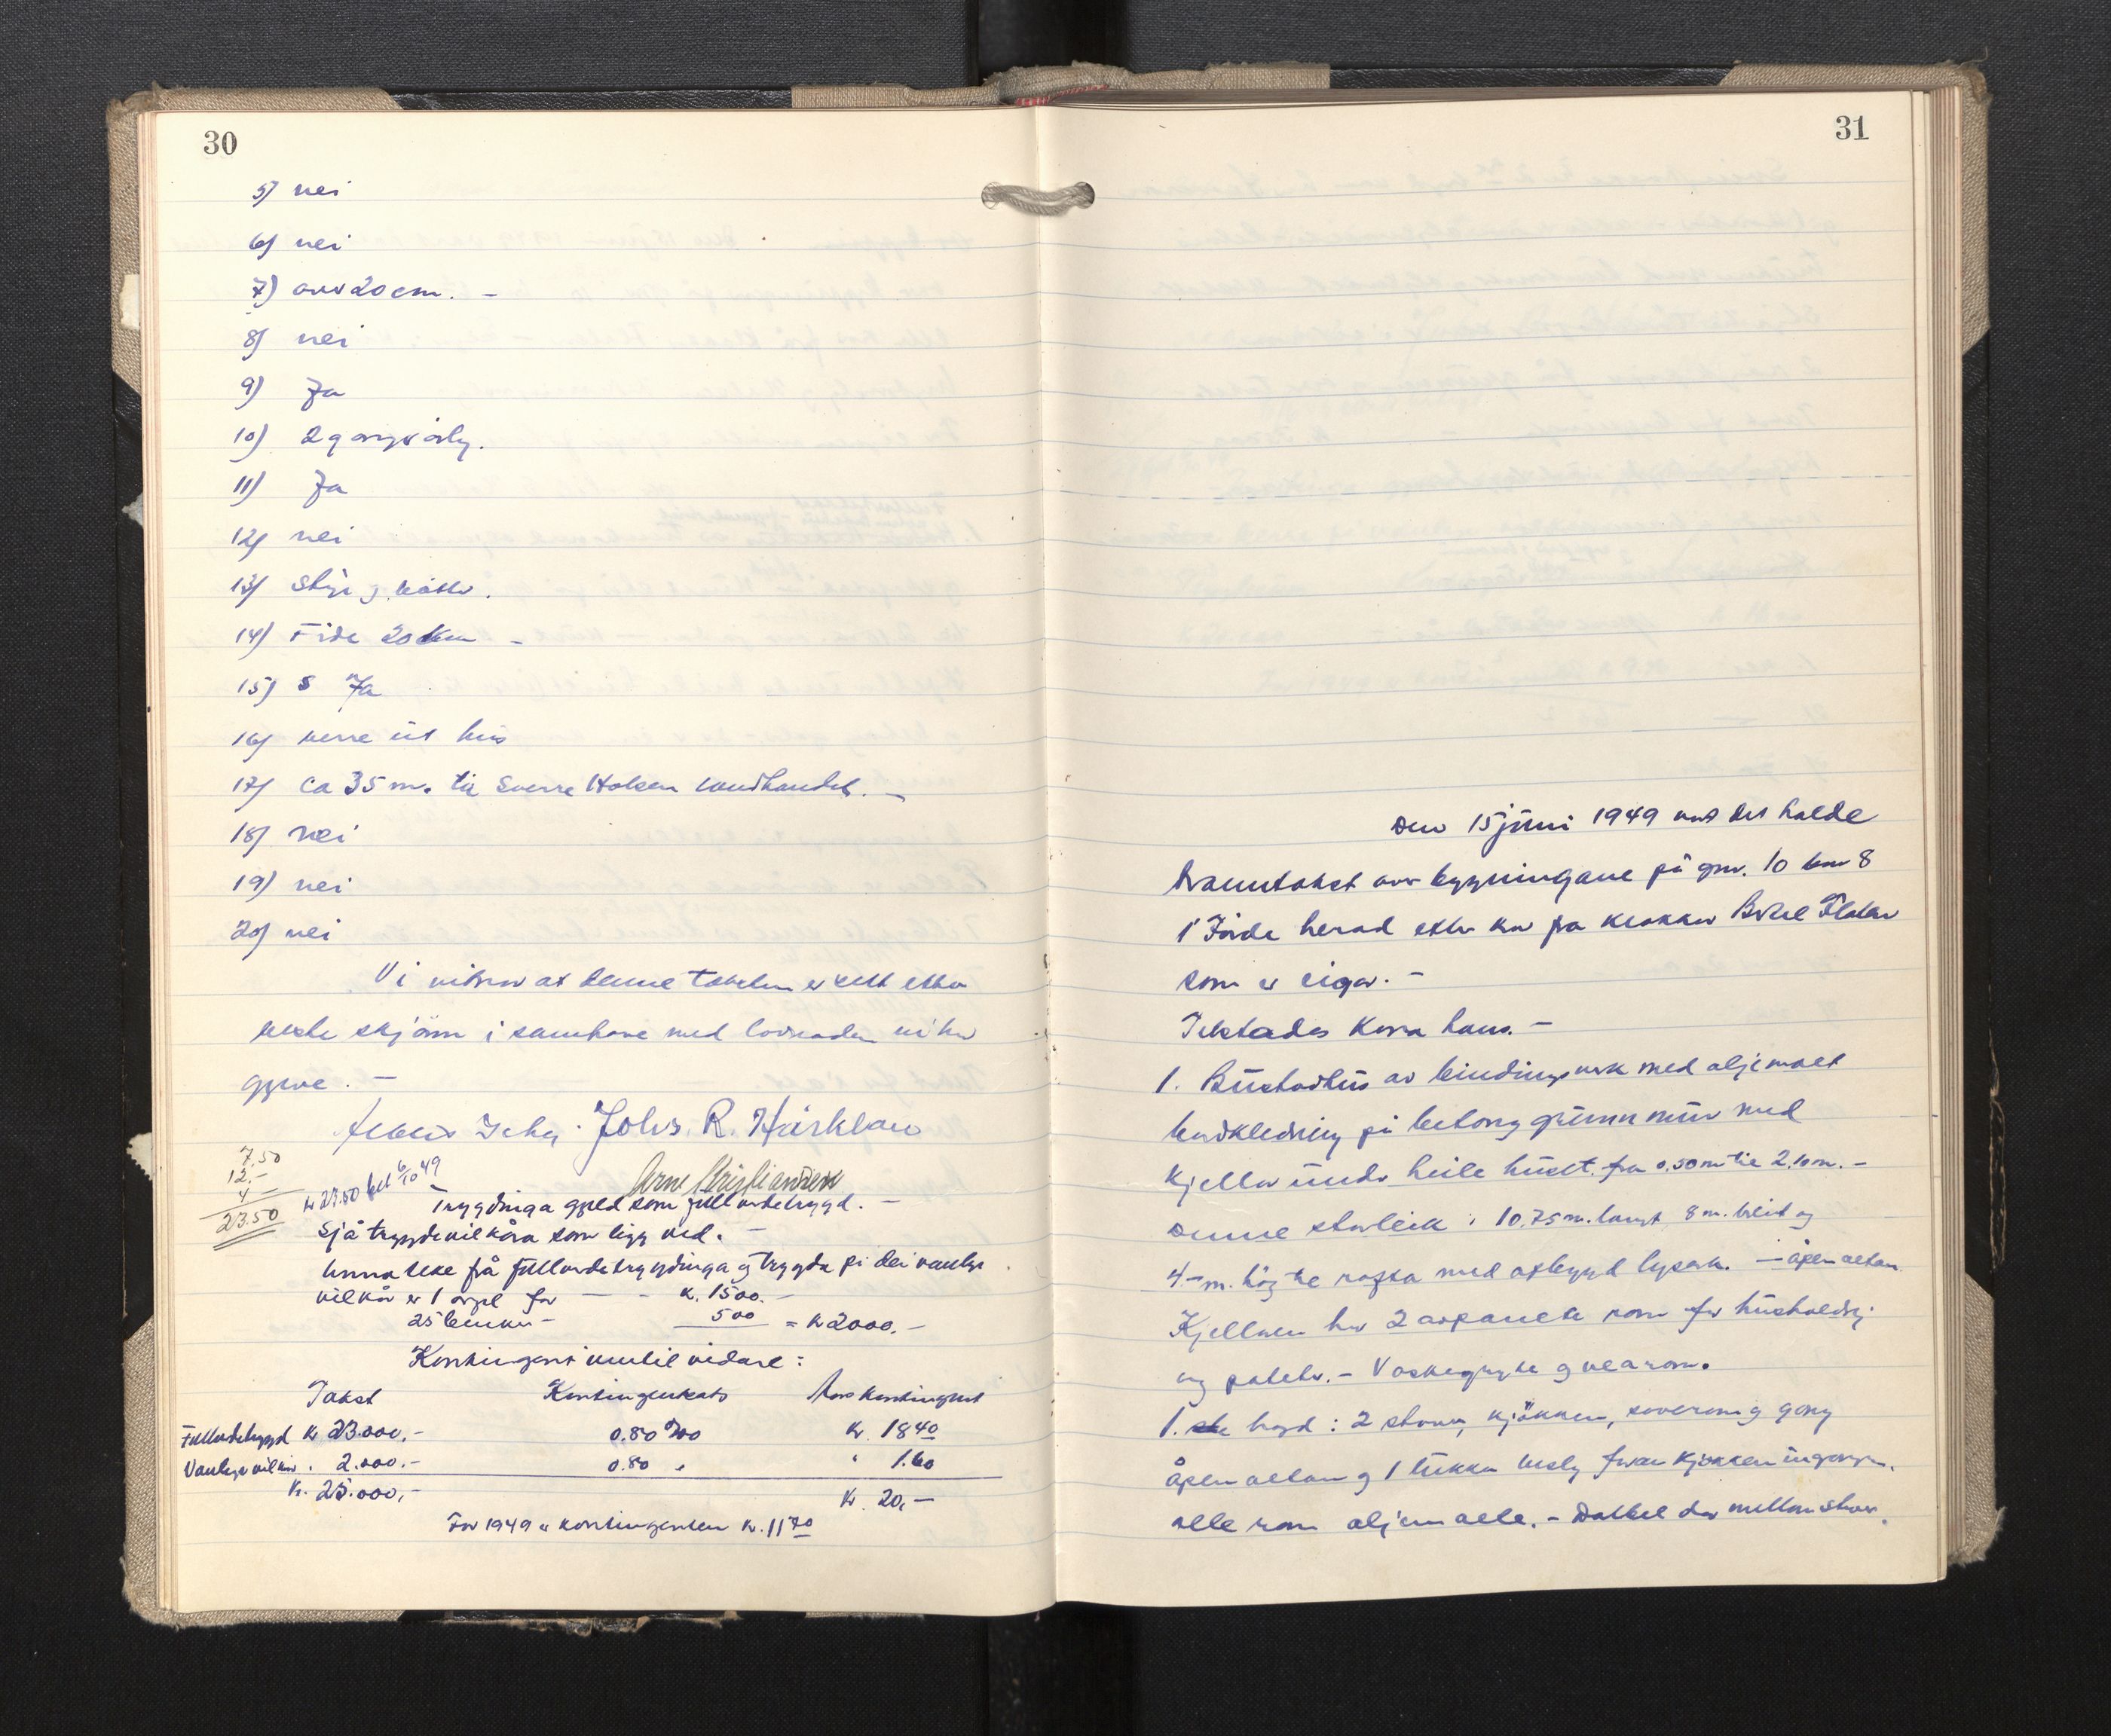 30
5) nei
6) nei
7) over 20 cm. -
8) nei
9) Ja
10) 2 gonger årleg.
11) Ja
12) nei
13) stige og bøtter.
14) Førde 20 km -
15) Ja
16) berre eit hus
17) ca 35 m. til Sverre Holsen landhandel. -
18) nei
19) nei
20) nei
Vi vitnar at denne taksten er sett etter
beste skjønn i samhøve med lovnaden vi har
gjeve. -
Johs. R. Hårklau
Arne Kristiansen
7.50
12.-
4
23.50
kr 23.50 bet 6/10 49
Trygdinga gjeld som fullverdetrygd. -
Sjå trygdevilkåra som ligg ved. -
Unnateke frå fullverdetrygdinga og trygda på dei vanlege
vilkår er 1 orgel for - - k. 1500.-
25 benker - 500 = kr 2000.-
Kontingent inntil vidare:
Takst Kontingentsats Års kontingent
Fullverdetrygd kr 23.000,- 0.80 ‰ kr. 18 40
Vanlege vilkår " 2.000.- 0.80 " " 1.60
Kr. 25.000,- kr. 20,-
For 1949 er kontingenten kr. 11 70
31
Den 15 juni 1949 vart det halde
branntakst over bygningane på gnr. 10 bnr 8
i Førde herad etter krav frå klokkar Bottel Flaten
som er eigar. -
Tilstades kona hans. -
1. Bustadhus av bindingsverk med oljemalt
bordkledning på betong grunnmur med
kjellar under heile huset. fra 0,50 m til 2,10 m. -
Denne storleik: 10,75 m. langt, 8 m. breid og
4 - m. høg til rafta med opbygd lysark. - åpen altan.
Kjellaren har 2 avpanela rom for husholdning
og poteter. - Vaskegryte og vearom.
1. høgd: 2 stover, kjøkken, soverom og gang
åpen altan og 1 lukka framfor kjøkken inngangen.
alle rom oljemalte. - Dobbel dør mellom stover.